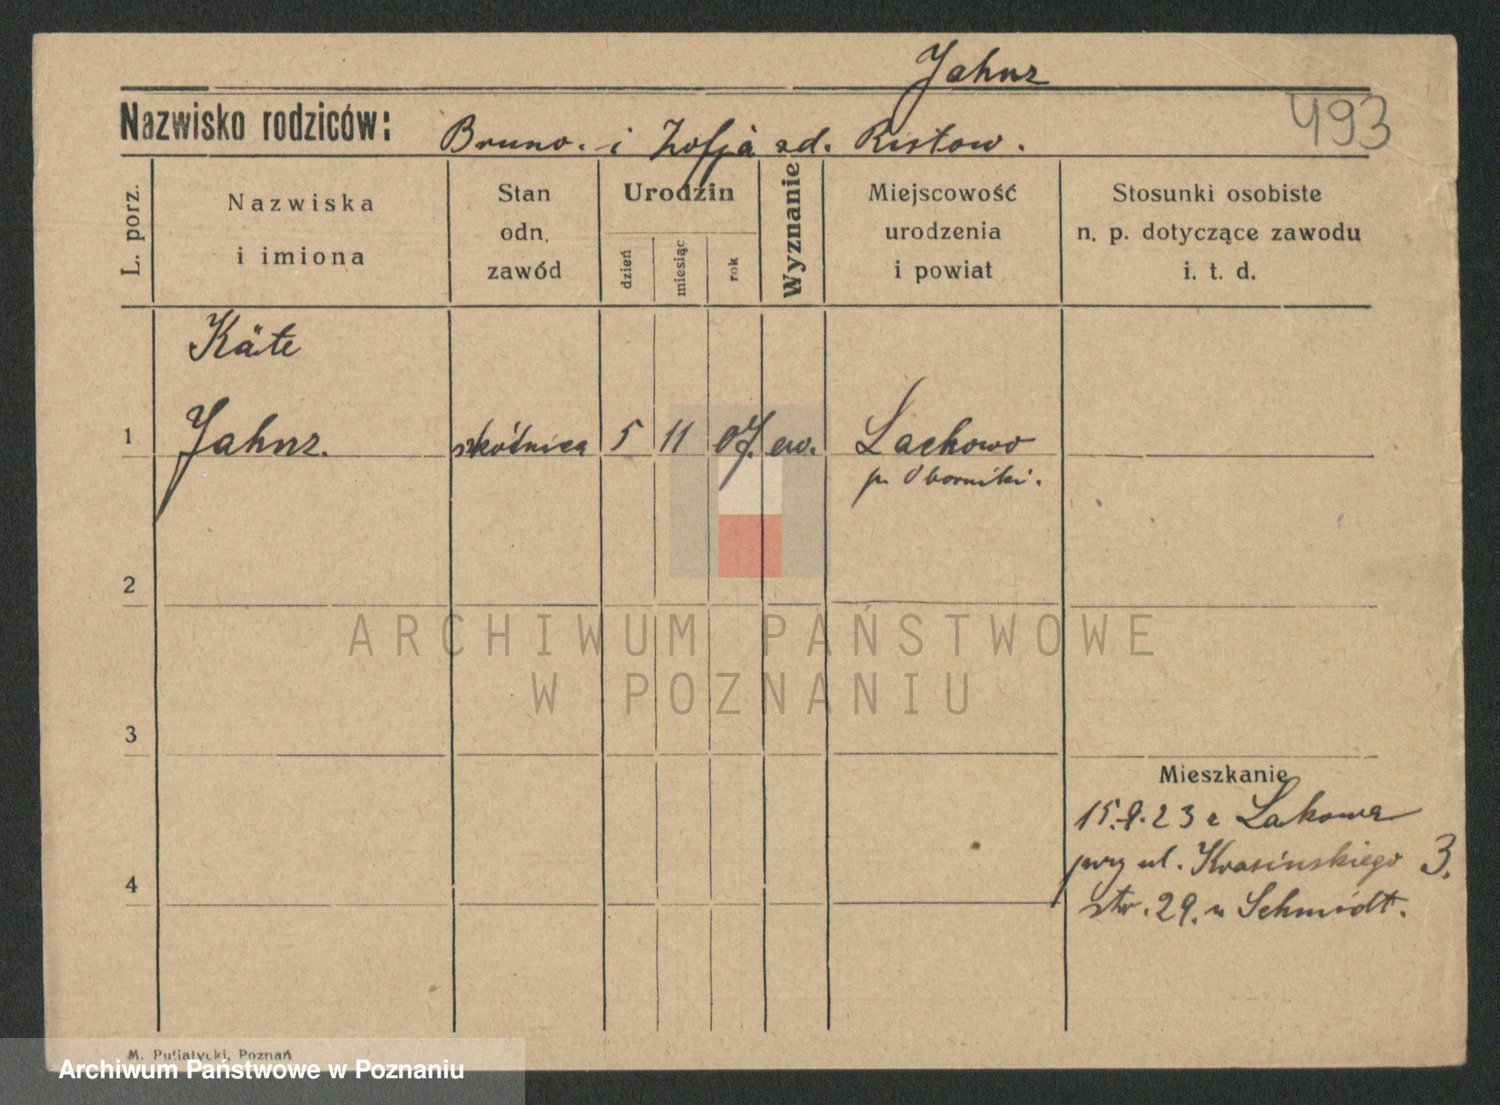 Jahnz
493
Nazwisko rodziców: Bruno. i Zofja zd. Ristow.
L. porz.
Nazwiska
i imiona
Stan
odn.
zawód
Urodzin
dzień
miesiąc
rok
Wyznanie
Miejscowość
urodzenia
i powiat
Stosunki osobiste
n. p. dotyczące zawodu
i. t. d.
Käte
1 Jahnz. szkólnica 5 11 07. ew. Lachowo
p. Oborniki.
2
ARCHIWUM PAŃSTWOWE
W POZNANIU
3
Mieszkanie
15.9.23 z Lakowa
przy ul. Krasińskiego 3.
4
str. 29. u Schmidt.
M. Putiatycki, Poznań
Archiwum Państwowe w Poznaniu